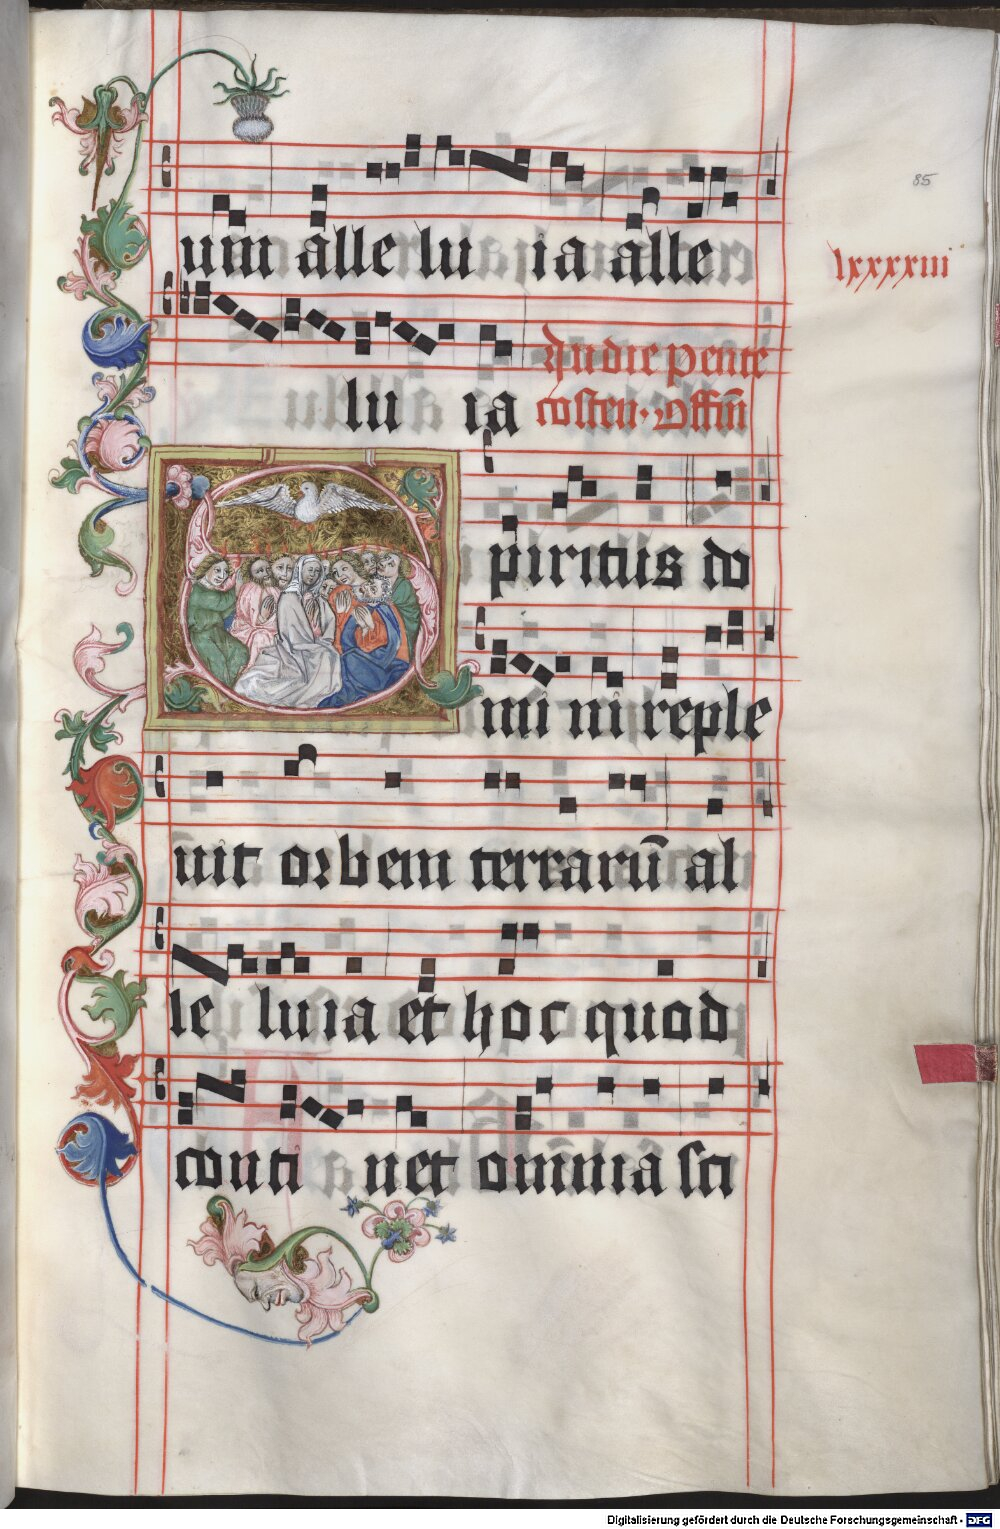 85
um alle lu ia alle
lxxxxiii
lu ia In die pente
costen. Offm̄
Spiritus do
mi ni reple
uit orbem terrarū al
le luia et hoc quod
conti net omnia sci
Digitalisierung gefördert durch die Deutsche Forschungsgemeinschaft - DFG